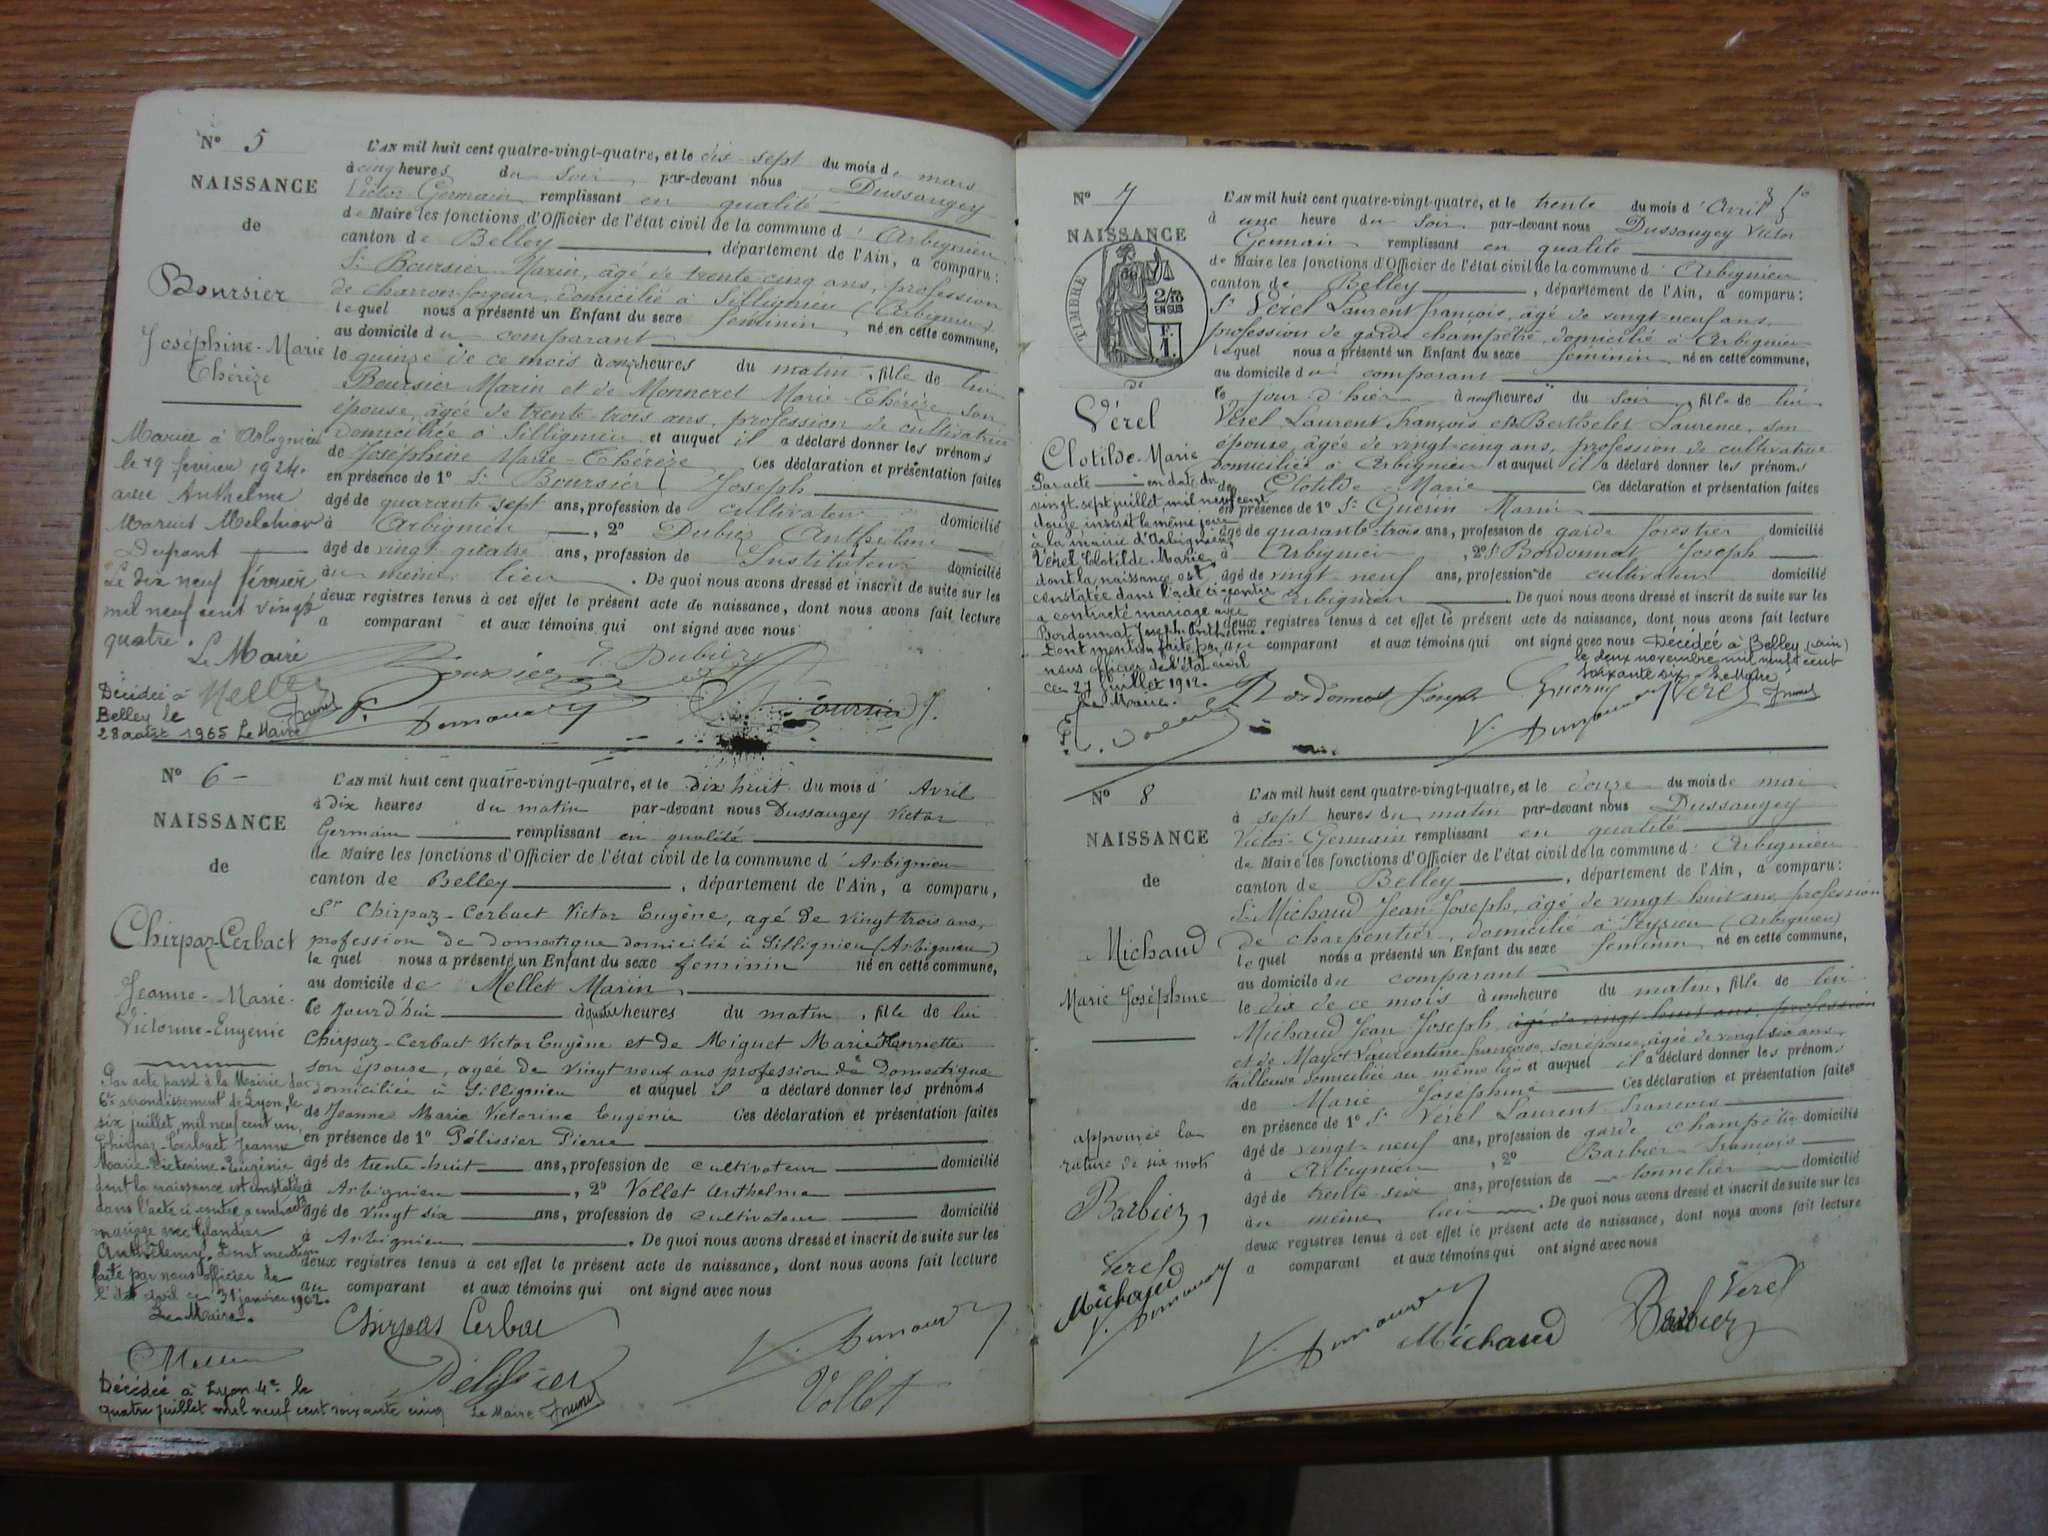 N° 5
NAISSANCE
de
Boursier
Joséphine-Marie
Thérèze
Mariée à Arbignieu
le 19 février 1924
avec Anthelme
Marius Melchior
Dupont
Le dix neuf février
mil neuf cent vingt
quatre.
Le Maire
Décédée à
Belley le
28 août 1965 Le Maire
L'AN mil huit cent quatre-vingt-quatre, et le dix-sept du mois de mars
à cinq heures du soir par-devant nous Dussaugey
Victor Germain remplissant en qualité
de Maire les fonctions d'Officier de l'état civil de la commune d'Arbignieu
canton de Belley département de l'Ain, a comparu :
Sr Boursier Marin, âgé de trente cinq ans, profession
de charron-forgeur, domicilié à Sillignieu (Arbignieu)
lequel nous a présenté un Enfant du sexe féminin né en cette commune,
au domicile du comparant
le quinze de ce mois à onze heures du matin, fille de lui
Boursier Marin et de Monneret Marie-Thérèze son
épouse, âgée de trente trois ans, profession de cultivatrice
domiciliée à Sillignieu et auquel il a déclaré donner les prénoms
de Joséphine Marie-Thérèze Ces déclaration et présentation faites
en présence de 1° Sr Boursier Joseph
âgé de quarante sept ans, profession de cultivateur domicilié
à Arbignieu, 2° Dubiez Anthelme
âgé de vingt quatre ans, profession de Instituteur domicilié
au même lieu. De quoi nous avons dressé et inscrit de suite sur les
deux registres tenus à cet effet le présent acte de naissance, dont nous avons fait lecture
a comparant et aux témoins qui ont signé avec nous
Boursier
N° 6
NAISSANCE
de
Chirpaz-Cerbact
Jeanne-Marie-
Victorine-Eugénie
Par acte passé à la Mairie du
6e arrondissement de Lyon, le
six juillet mil neuf cent un,
Chirpaz-Cerbact Jeanne
Marie-Victorine-Eugénie
dont la naissance est constatée
dans l'acte ci-contre a contracté
mariage avec
Dont mention
faite par nous officier de
l'état civil ce 31 janvier 1902.
Le Maire.
Décédée à Lyon 4e le
quatre juillet mil neuf cent soixante cinq Le Maire
L'AN mil huit cent quatre-vingt-quatre, et le dix huit du mois d'Avril
à dix heures du matin par-devant nous Dussaugey Victor
Germain remplissant en qualité
de Maire les fonctions d'Officier de l'état civil de la commune d'Arbignieu
canton de Belley, département de l'Ain, a comparu,
Sr Chirpaz-Cerbact Victor Eugène, agé de vingt trois ans,
profession de domestique domicilié à Sillignieu (Arbignieu)
le quel nous a présenté un Enfant du sexe feminin né en cette commune,
au domicile de Mellet Marin
le jourd'hui à quatre heures du matin, fille de lui
Chirpaz-Cerbact Victor Eugène et de Miguet Marie Henriette
son épouse, agée de vingt neuf ans profession de Domestique
domiciliée à Sillignieu et auquel il a déclaré donner les prénoms
de Jeanne Marie Victorine Eugénie Ces déclaration et présentation faites
en présence de 1° Pélissier Pierre
âgé de trente-huit ans, profession de cultivateur domicilié
à Arbignieu, 2° Vollet Anthelme
âgé de vingt six ans, profession de cultivateur domicilié
à Arbignieu. De quoi nous avons dressé et inscrit de suite sur les
deux registres tenus à cet effet le présent acte de naissance, dont nous avons fait lecture
au comparant et aux témoins qui ont signé avec nous
Chirpas Cerbac
Pélissier
Vollet
N° 7
NAISSANCE
TIMBRE
2/10
EN SUS
DE
Vérel
Clotilde-Marie
Par acte en date du
vingt sept juillet mil neuf cent
douze, inscrit le même jour
à la mairie d'Arbignieu,
Vérel Clotilde-Marie
dont la naissance est
constatée dans l'acte ci-contre
a contracté mariage avec
Bordonnat Joseph Anthelme.
Dont mention faite par
nous officier de l'état civil
ce 27 juillet 1912.
Le Maire.
L'AN mil huit cent quatre-vingt-quatre, et le trente du mois d'Avril
à une heure du soir par-devant nous Dussaugey Victor
Germain remplissant en qualité
de Maire les fonctions d'Officier de l'état civil de la commune d'Arbignieu
canton de Belley, département de l'Ain, a comparu :
Sr Vérel Laurent françois, âgé de vingt-neuf ans,
profession de garde champêtre domicilié à Arbignieu
lequel nous a présenté un Enfant du sexe féminin né en cette commune,
au domicile du comparant
le jour d'hier à neuf heures du soir, fille de lui
Vérel Laurent François et Berthelet Laurence, son
épouse, âgée de vingt-cinq ans, profession de cultivatrice
domiciliée à Arbignieu et auquel il a déclaré donner les prénoms
de Clotilde-Marie Ces déclaration et présentation faites
en présence de 1° Sr Guerin Marin
âgé de quarante-trois ans, profession de garde forestier domicilié
à Arbignieu, 2° Sr Bordonnat Joseph
âgé de vingt-neuf ans, profession de cultivateur domicilié
Arbignieu. De quoi nous avons dressé et inscrit de suite sur les
deux registres tenus à cet effet le présent acte de naissance, dont nous avons fait lecture
au comparant et aux témoins qui ont signé avec nous Décédée à Belley (Ain)
le deux novembre mil neuf cent
soixante six Le Maire
Bordonnat Joseph Guerin Verel
N° 8
NAISSANCE
de
Michaud
Marie Joséphine
approuvée la
rature de six mots
Barbier
Verel
Michaud
L'AN mil huit cent quatre-vingt-quatre, et le douze du mois de mai
à sept heures du matin par-devant nous Dussaugey
Victor-Germain remplissant en qualité
de Maire les fonctions d'Officier de l'état civil de la commune d'Arbignieu
canton de Belley, département de l'Ain, a comparu :
Sr Michaud Jean-Joseph, âgé de vingt huit ans, profession
de charpentier, domicilié à Peyzieu (Arbignieu)
lequel nous a présenté un Enfant du sexe féminin né en cette commune,
au domicile du comparant
le dix de ce mois à une heure du matin, fille de lui
Michaud Jean-Joseph, âgé de vingt huit ans, profession
et de Mayot Laurentine françoise son épouse, âgée de vingt six ans,
tailleuse domiciliée au même lieu et auquel il a déclaré donner les prénoms
de Marie Joséphine Ces déclaration et présentation faites
en présence de 1° Sr Vérel Laurent François
âgé de vingt-neuf ans, profession de garde champêtre domicilié
à Arbignieu, 2° Barbier François
âgé de trente six ans, profession de tonnelier domicilié
au même lieu. De quoi nous avons dressé et inscrit de suite sur les
deux registres tenus à cet effet le présent acte de naissance, dont nous avons fait lecture
a comparant et aux témoins qui ont signé avec nous
Michaud Barbier Verel